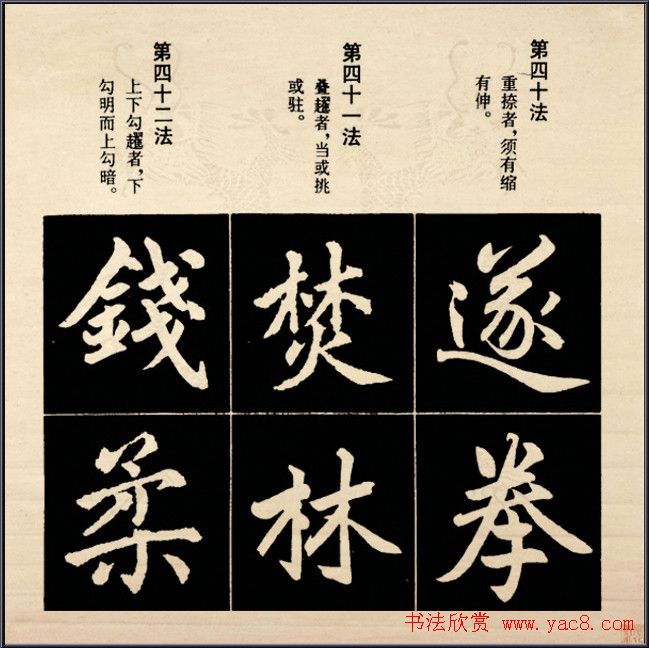 第四十法
重捺者，须有缩
有伸。
第四十一法
叠趯者，当或挑
或驻。
第四十二法
上下勾趯者，下
勾明而上勾暗。
遂
拳
焚
林
錢
柔
书法欣赏 www.yac8.com